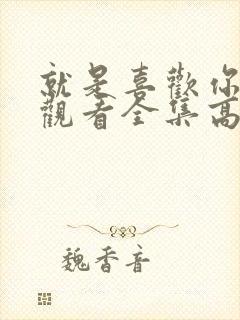 就是喜歡你
觀看全集高
魏香音